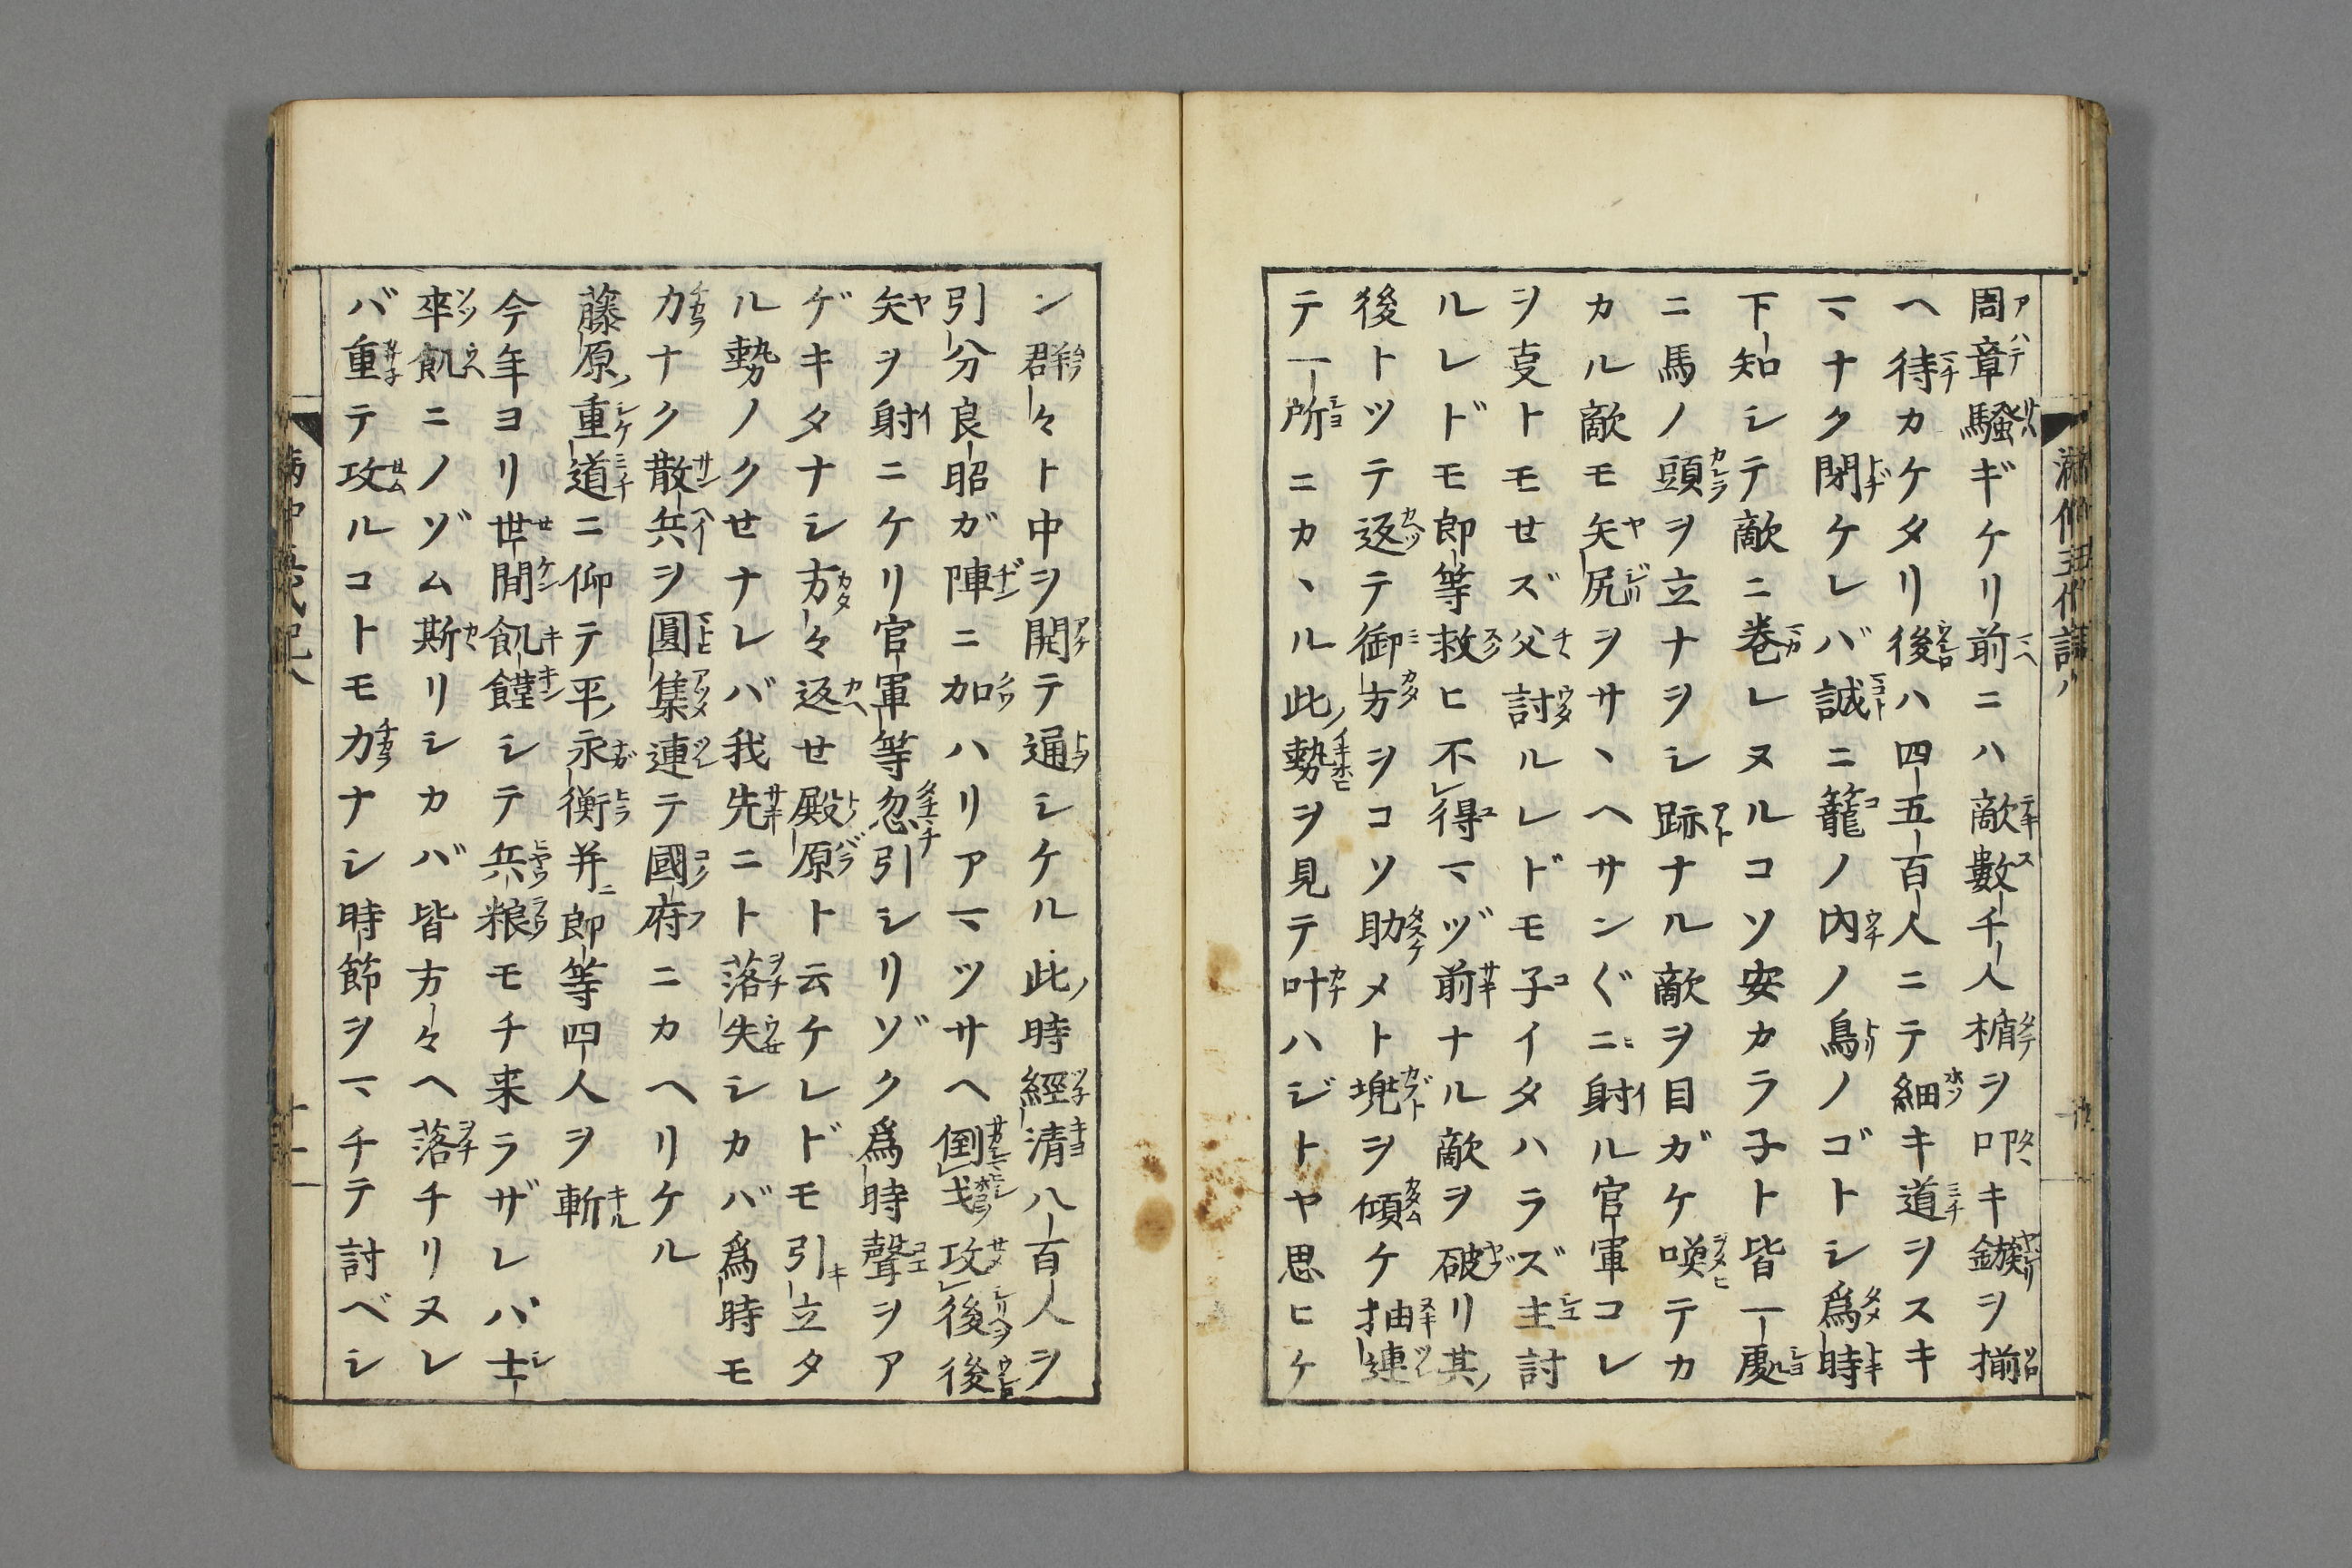 周章騒ギケリ前ニハ敵數千人楯ヲ叩キ鏃ヲ揃
ヘ待カケタリ後ハ四五百人ニテ細キ道ヲスキ
マナク閉ケレバ誠ニ籠ノ内ノ鳥ノゴトシ爲時
下知シテ敵ニ巻レヌルコソ安カラ子ト皆一處
ニ馬ノ頭ヲ立ナヲシ跡ナル敵ヲ目ガケ喚テカ
カル敵モ矢尻ヲサヽヘサンぐニ射ル官軍コレ
ヲ𠮧トモせズ父討ルレドモ子イタハラズ主討
ルレドモ郎等救ヒ不得マヅ前ナル敵ヲ破リ其
後トツテ返テ御方ヲコソ助メト兜ヲ傾ケ抽連
テ一所ニカヽル此勢ヲ見テ叶ハジトヤ思ヒケ
ン群々ト中ヲ開テ通シケル此時經清八百人ヲ
引分良昭ガ陣ニ加ハリアマツサヘ倒戈攻後後
矢ヲ射ニケリ官軍等忽引シリゾク爲時聲ヲア
ゲキタナシ方々返せ殿原ト云ケレドモ引立タ
ル勢ノクせナレバ我先ニト落失シカバ爲時モ
力ナク散兵ヲ圓集連テ國府ニカヘリケル
藤原重道ニ仰テ平永衡并郎等四人ヲ斬
今年ヨリ世間飢饉シテ兵粮モチ来ラザレバ士
卒飢ニノゾム斯リシカバ皆方々ヘ落チリヌレ
バ重テ攻ルコトモ力ナシ時節ヲマチテ討ベシ
十一